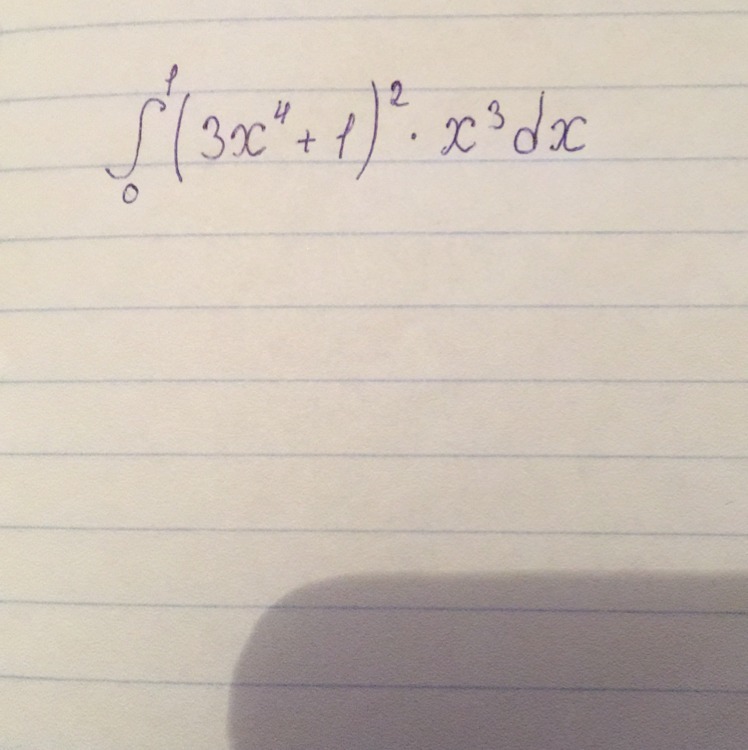 ∫₀¹(3x⁴+1)²· x³dx